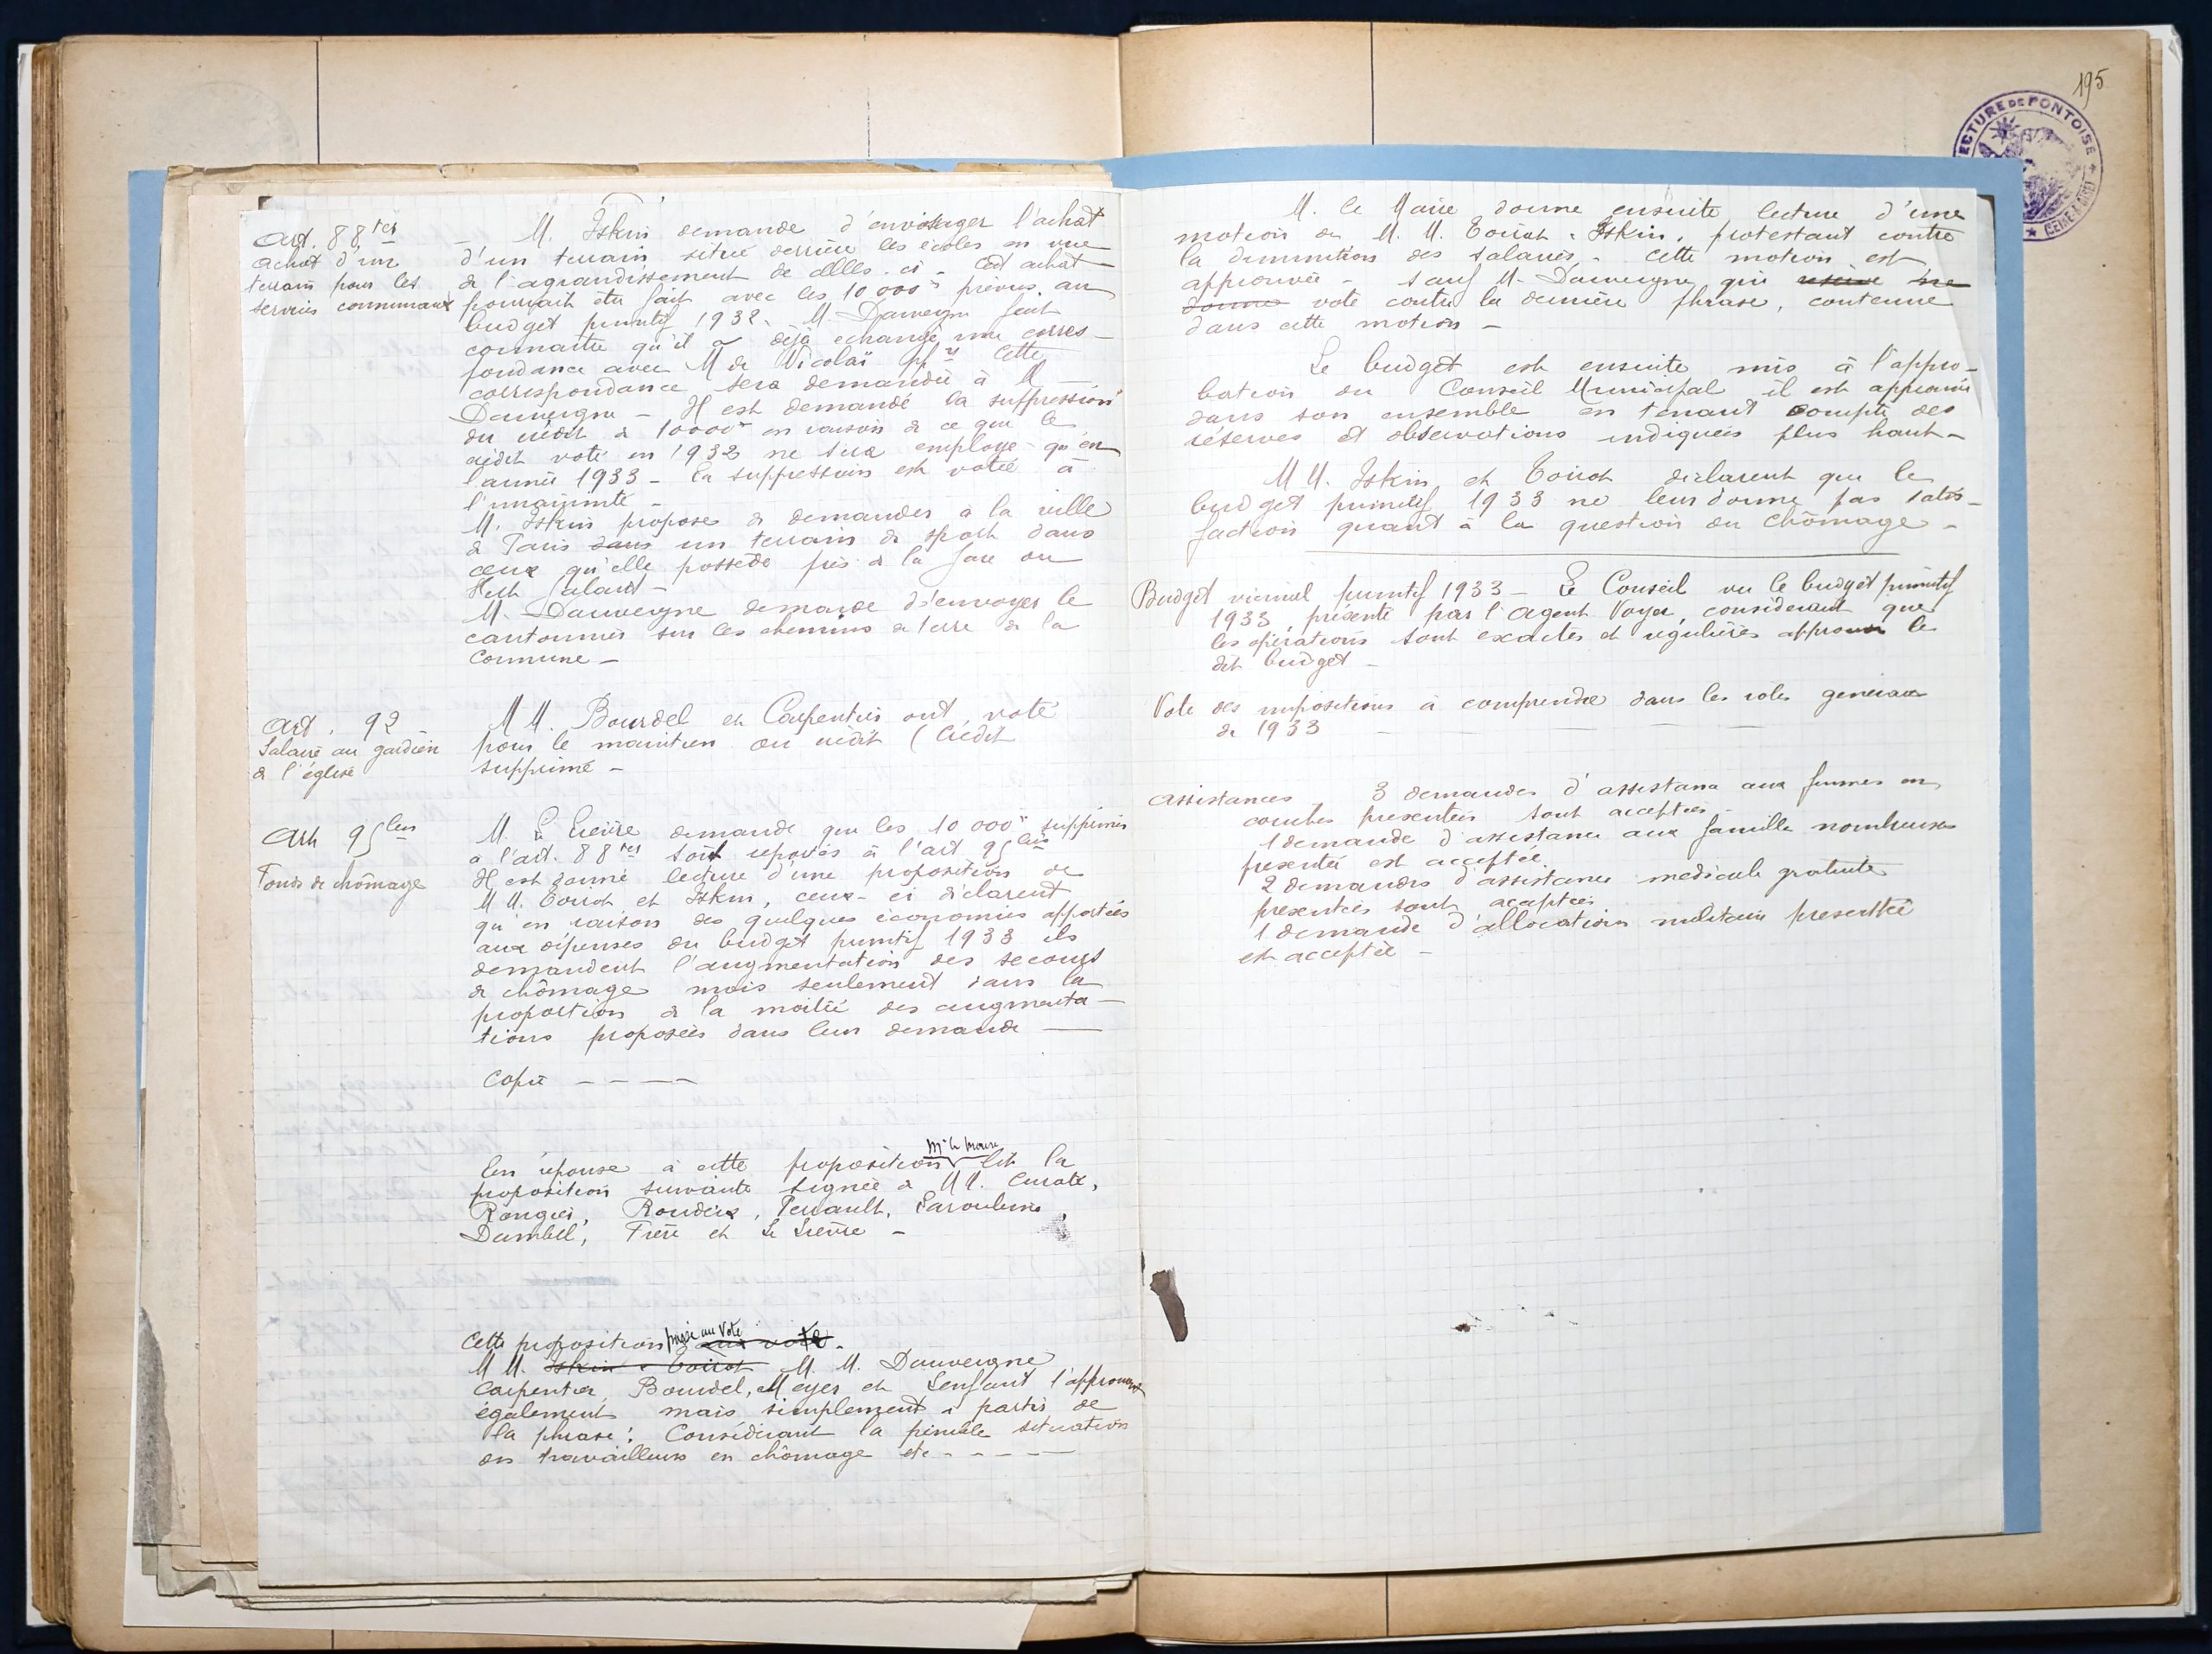 195
ECTURE DE PONTOISE
Art. 88ter
Achat d'un
terrain pour les
services communaux
M. Iskin demande d'envisager l'achat
d'un terrain situé derrière les écoles en vue
de l'agrandissement de celles-ci - Cet achat
pourrait être fait avec les 10 000 f prévus au
budget primitif 1932. M. Dauvergne fait
connaitre qu'il a déjà échangé une corres-
pondance avec M de Nicolaï Cette
correspondance sera demandée à M
Dauvergne - Il est demandé la suppression
du crédit de 10000 f en raison de ce que le
crédit voté en 1932 ne sera employé qu'en
l'année 1933 - La suppression est votée à
l'unanimité -
M. Iskin propose de demander à la ville
de Paris dans un terrain de sport dans
ceux qu'elle possède près de la
M. Dauvergne demande d'envoyer le
cantonnier sur les chemins de terre de la
Commune -
Art. 92
Salaire au gardien
de l'église
MM. Bourdel et Carpentier ont voté
pour le maintien du crédit (Crédit
supprimé -
Art 95 bis
Fonds de chômage
M. Le Lièvre demande que les 10 000 f supprimés
à l'art. 88ter soit reportés à l'art 95 bis
Il est donné lecture d'une proposition de
MM. Toirot et Iskin, ceux-ci déclarent
qu'en raison des quelques économies apportées
aux dépenses du budget primitif 1933 ils
demandent l'augmentation des secours
de chômage mais seulement dans la
proportion de la moitié des augmenta-
tions proposées dans leur demande
Copie - - - -
En réponse à cette proposition Mr le Maire lit la
proposition suivante signée de MM.
Rougier, Perrault,
Frère et Le Lièvre -
Cette proposition mise au vote aux vote.
MM. Iskin Toirot M. M. Dauvergne
Carpentier, Bourdel, Meyer et Lenfant l'approuvent
également mais simplement à partir de
la phrase: Considérant la pénible situation
des travailleurs en chômage etc - - - -
M. le Maire donne ensuite lecture d'une
motion de M. M. Toirot - Iskin, protestant contre
la diminution des salaires - Cette motion est
approuvée - sauf M. Dauvergne qui réserve ne
donne vote contre la dernière phrase, contenue
dans cette motion -
Le budget est ensuite mis à l'appro-
bation du Conseil Municipal il est approuvé
dans son ensemble en tenant compte des
réserves et observations indiquées plus haut -
MM. Iskin et Toirot déclarent que le
budget primitif 1933 ne leur donne pas satis-
faction quant à la question du chômage -
Budget vicinal primitif 1933 - Le Conseil vu le budget primitif
1933, présenté par l'Agent Voyer, considérant que
les opérations sont exactes et régulières approuve le
dit budget -
Vote des impositions à comprendre dans les rôles généraux
de 1933
Assistances 3 demandes d'assistance aux femmes en
couches présentées sont acceptées -
1 demande d'assistance aux famille nombreuses
présentée est acceptée.
2 demandes d'assistance médicale gratuite
présentées sont acceptées
1 demande d'allocation militaire présentée
est acceptée -